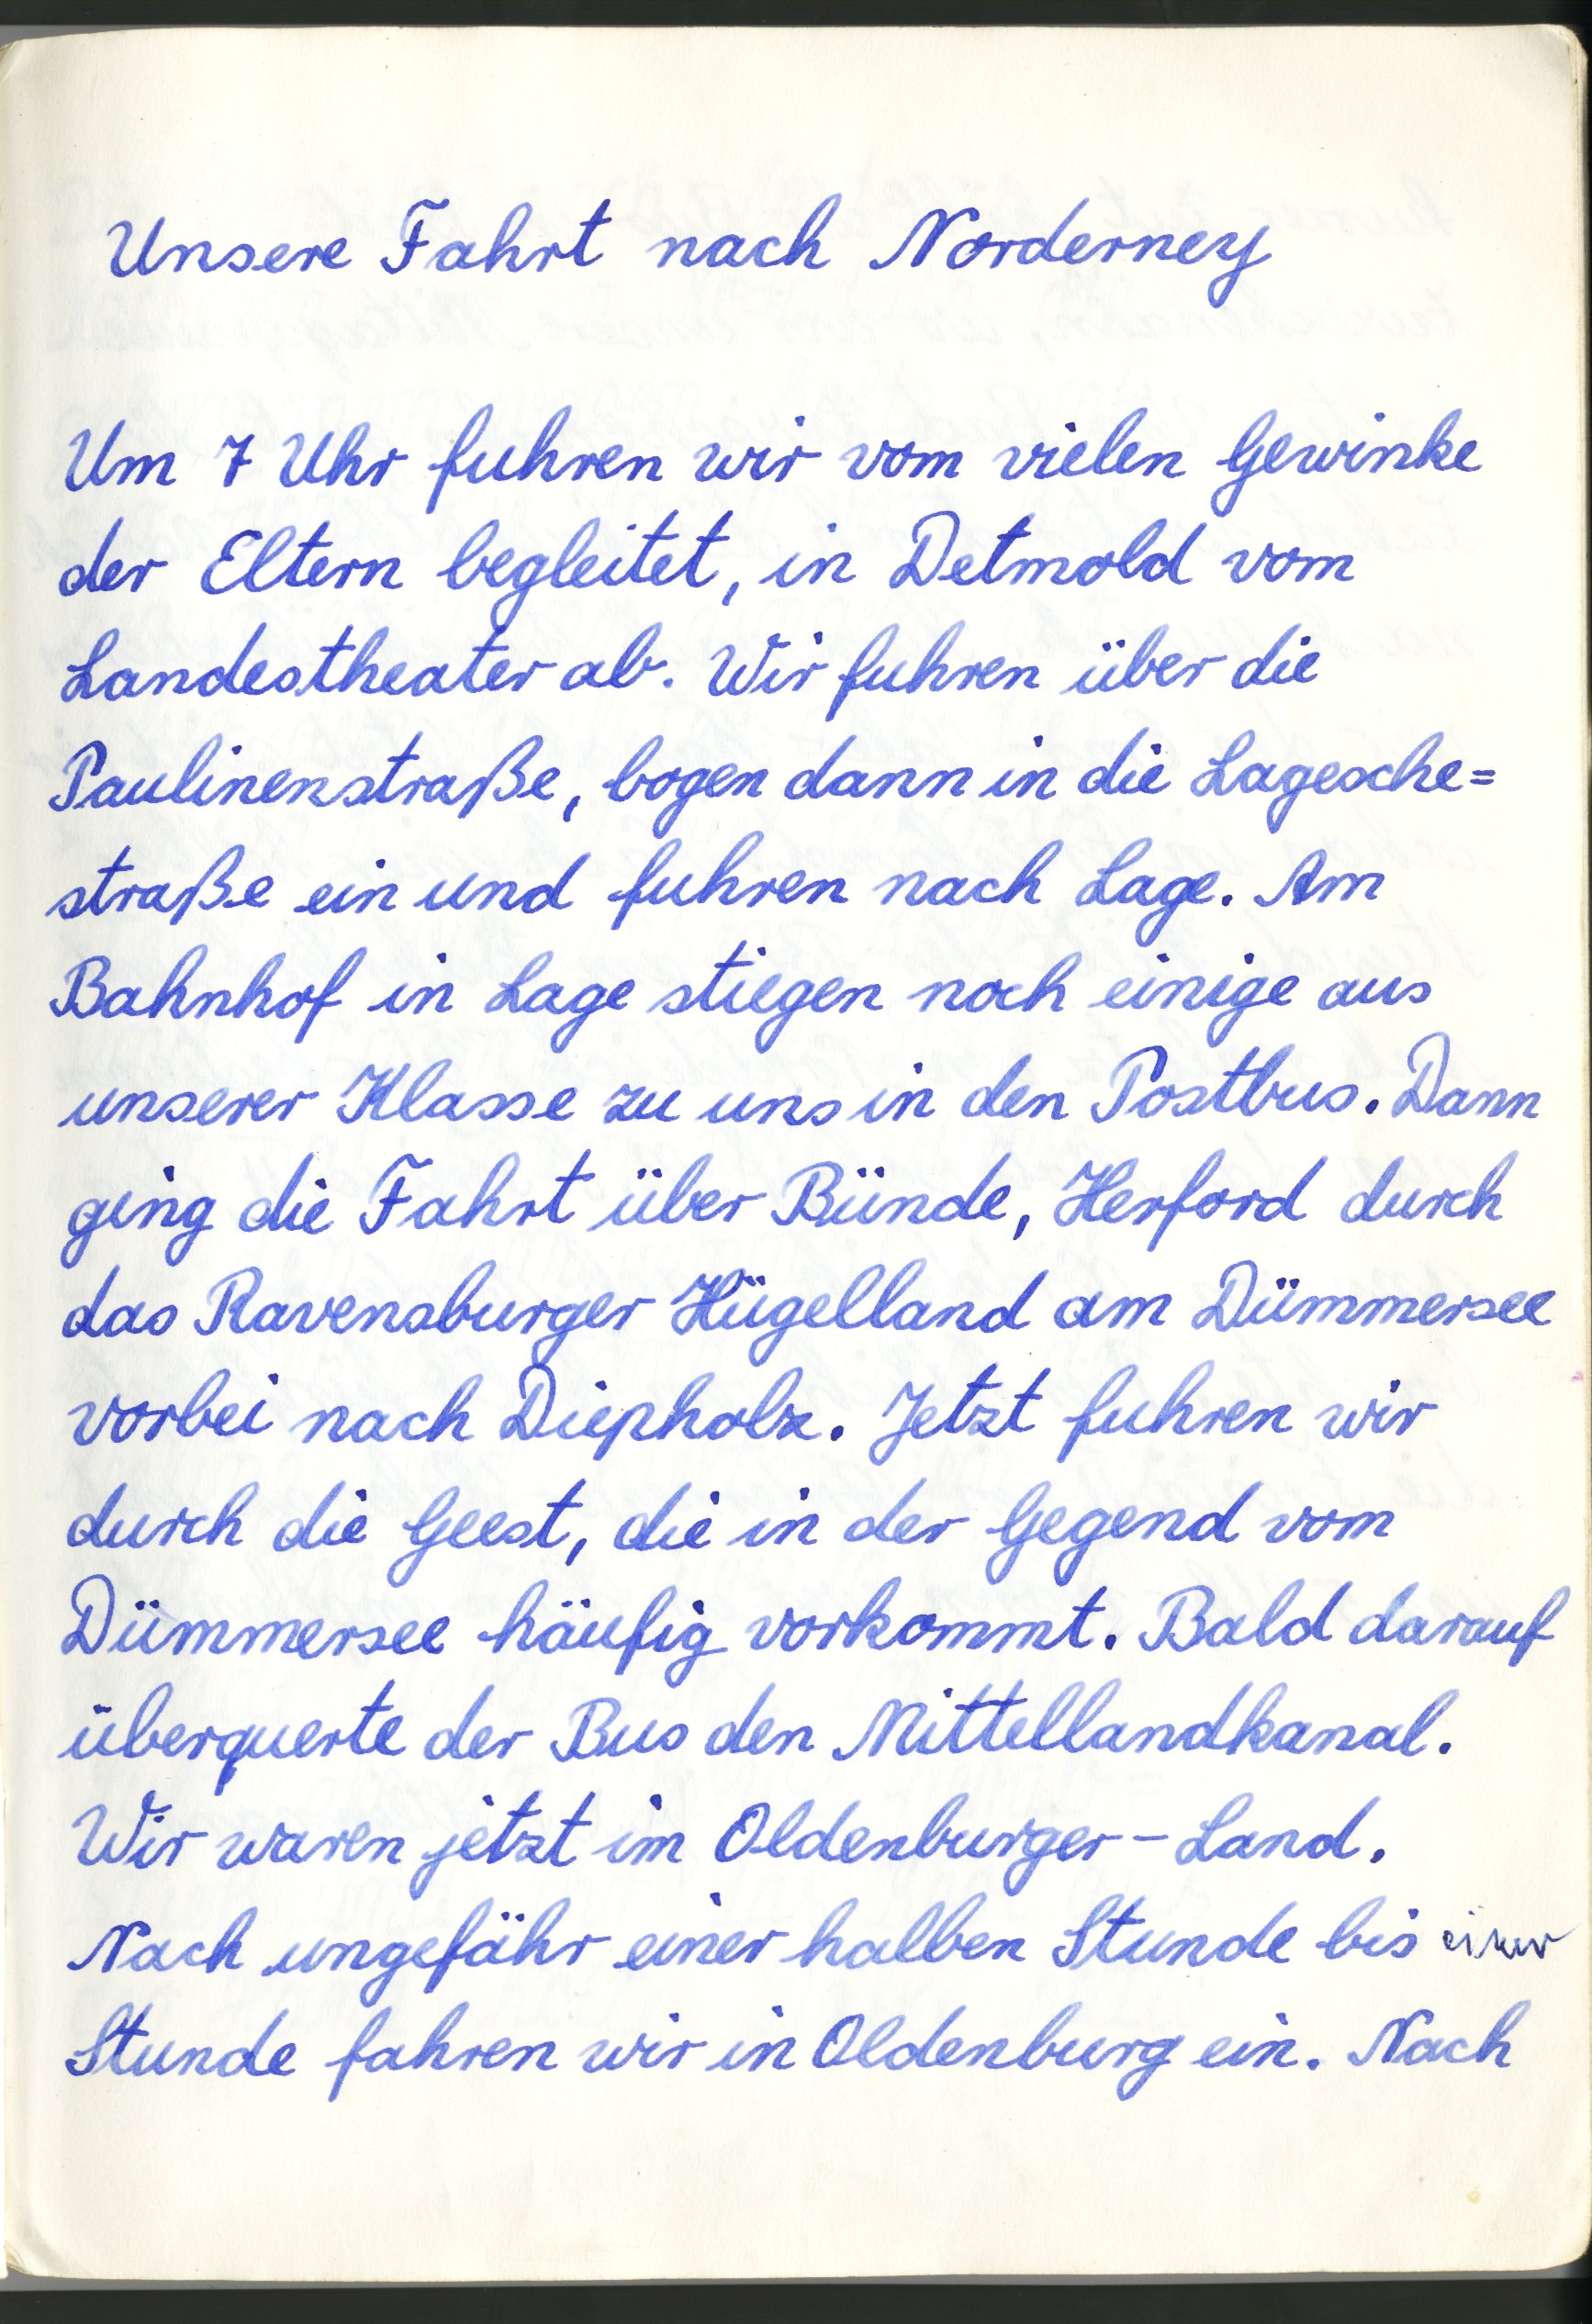 Unsere Fahrt nach Norderney
Um 7 Uhr fuhren wir vom vielen Gewinke
der Eltern begleitet, in Detmold vom
Landestheater ab. Wir fuhren über die
Paulinenstraße, bogen dann in die Lagesche=
straße ein und fuhren nach Lage. Am
Bahnhof in Lage stiegen noch einige aus
unserer Klasse zu uns in den Postbus. Dann
ging die Fahrt über Bünde, Herford durch
das Ravensburger Hügelland am Dümmersee
vorbei nach Diepholz. Jetzt fuhren wir
durch die Geest, die in der Gegend vom
Dümmersee häufig vorkommt. Bald darauf
überquerte der Bus den Mittellandkanal.
Wir waren jetzt im Oldenburger-Land.
Nach ungefähr einer halben Stunde bis einer
Stunde fahren wir in Oldenburg ein. Nach